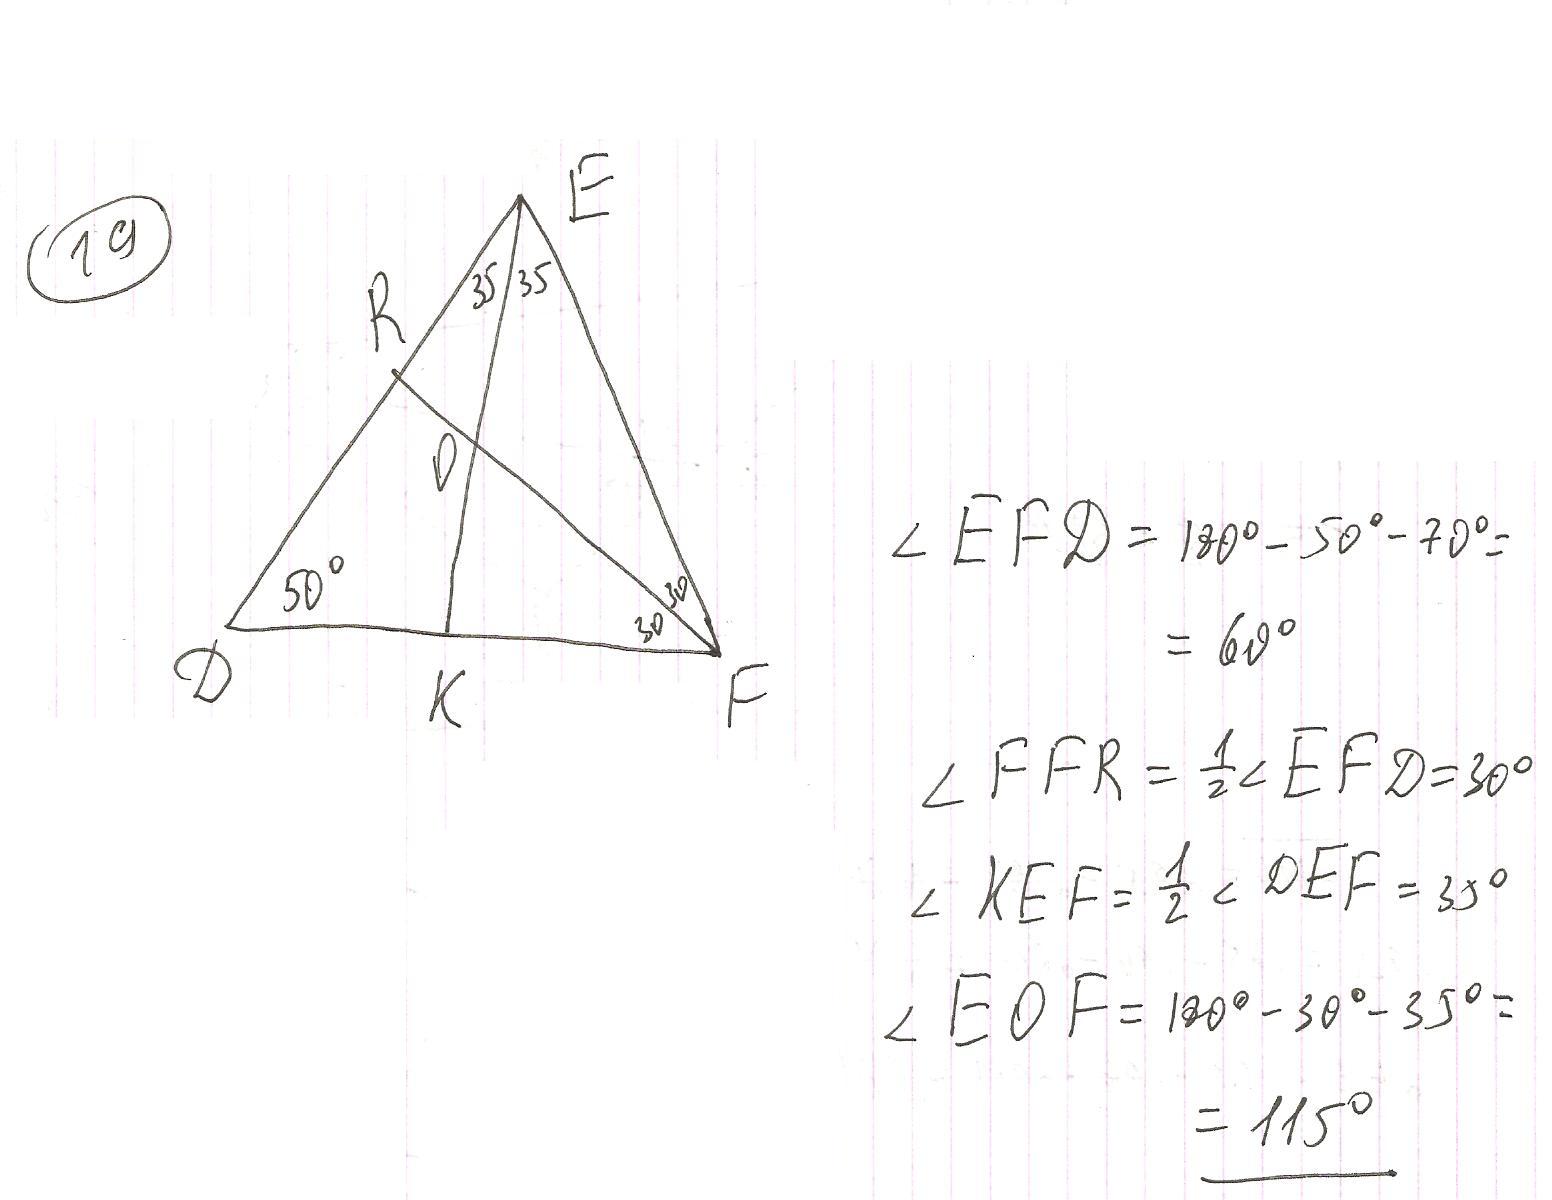 19
E
R
35 35
O
50°
30
30
D
K
F
< EFD = 180° - 50° - 70° =
= 60°
< FFR = 1/2 < EFD = 30°
< KEF = 1/2 < DEF = 35°
< EOF = 180° - 30° - 35° =
= 115°